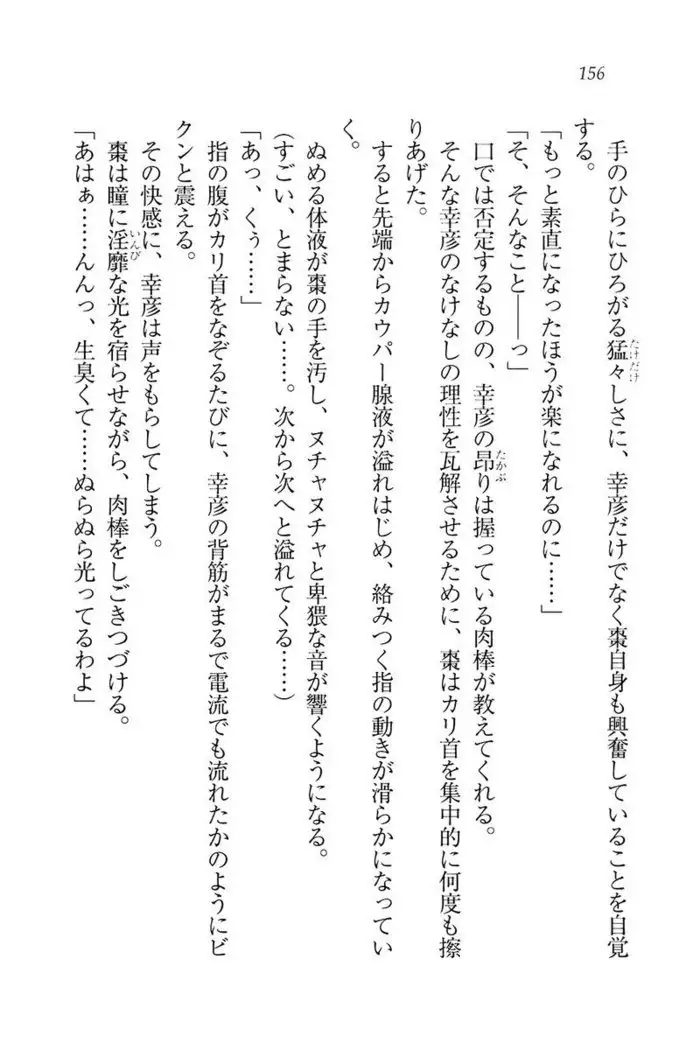 156
手のひらにひろがる猛々しさに、幸彦だけでなく棗自身も興奮していることを自覚
する。
「もっと素直になったほうが楽になれるのに……」
「そ、そんなこと――っ」
口では否定するものの、幸彦の昂りは握っている肉棒が教えてくれる。
そんな幸彦のなけなしの理性を瓦解させるために、棗はカリ首を集中的に何度も擦
りあげた。
すると先端からカウパー腺液が溢れはじめ、絡みつく指の動きが滑らかになってい
く。
ぬめる体液が棗の手を汚し、ヌチャヌチャと卑猥な音が響くようになる。
(すごい、とまらない……。次から次へと溢れてくる……)
「あっ、くぅ……」
指の腹がカリ首をなぞるたびに、幸彦の背筋がまるで電流でも流れたかのようにビ
クンと震える。
その快感に、幸彦は声をもらしてしまう。
棗は瞳に淫靡な光を宿らせながら、肉棒をしごきつづける。
「あはぁ……んんっ、生臭くて……ぬらぬら光ってるわよ」